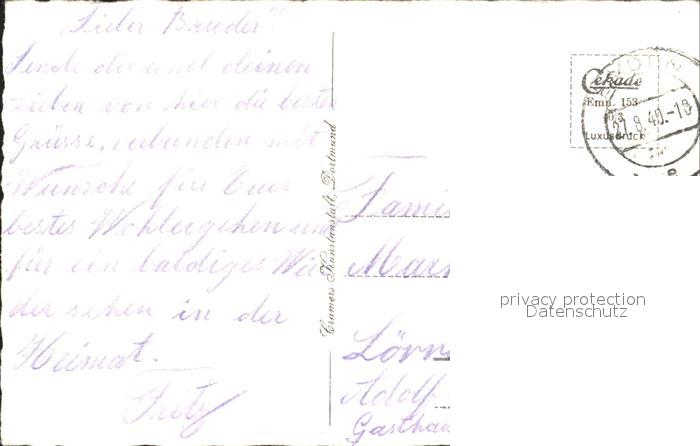 „Lieber Bruder"!
Sende dir und deinen
Lieben von hier die besten
Grüsse, verbunden mit
Wünsche für Euer
bestes Wohlergehen und
für ein baldiges Wie
der sehen in der
Heimat.
Fritz
Cramers Kunstanstalt, Dortmund
Cekade
Emp. 153
Luxusdruck
27.8.40.-18
Famil
Mar
Lörr
Adolf
Gasthau
privacy protection
Datenschutz